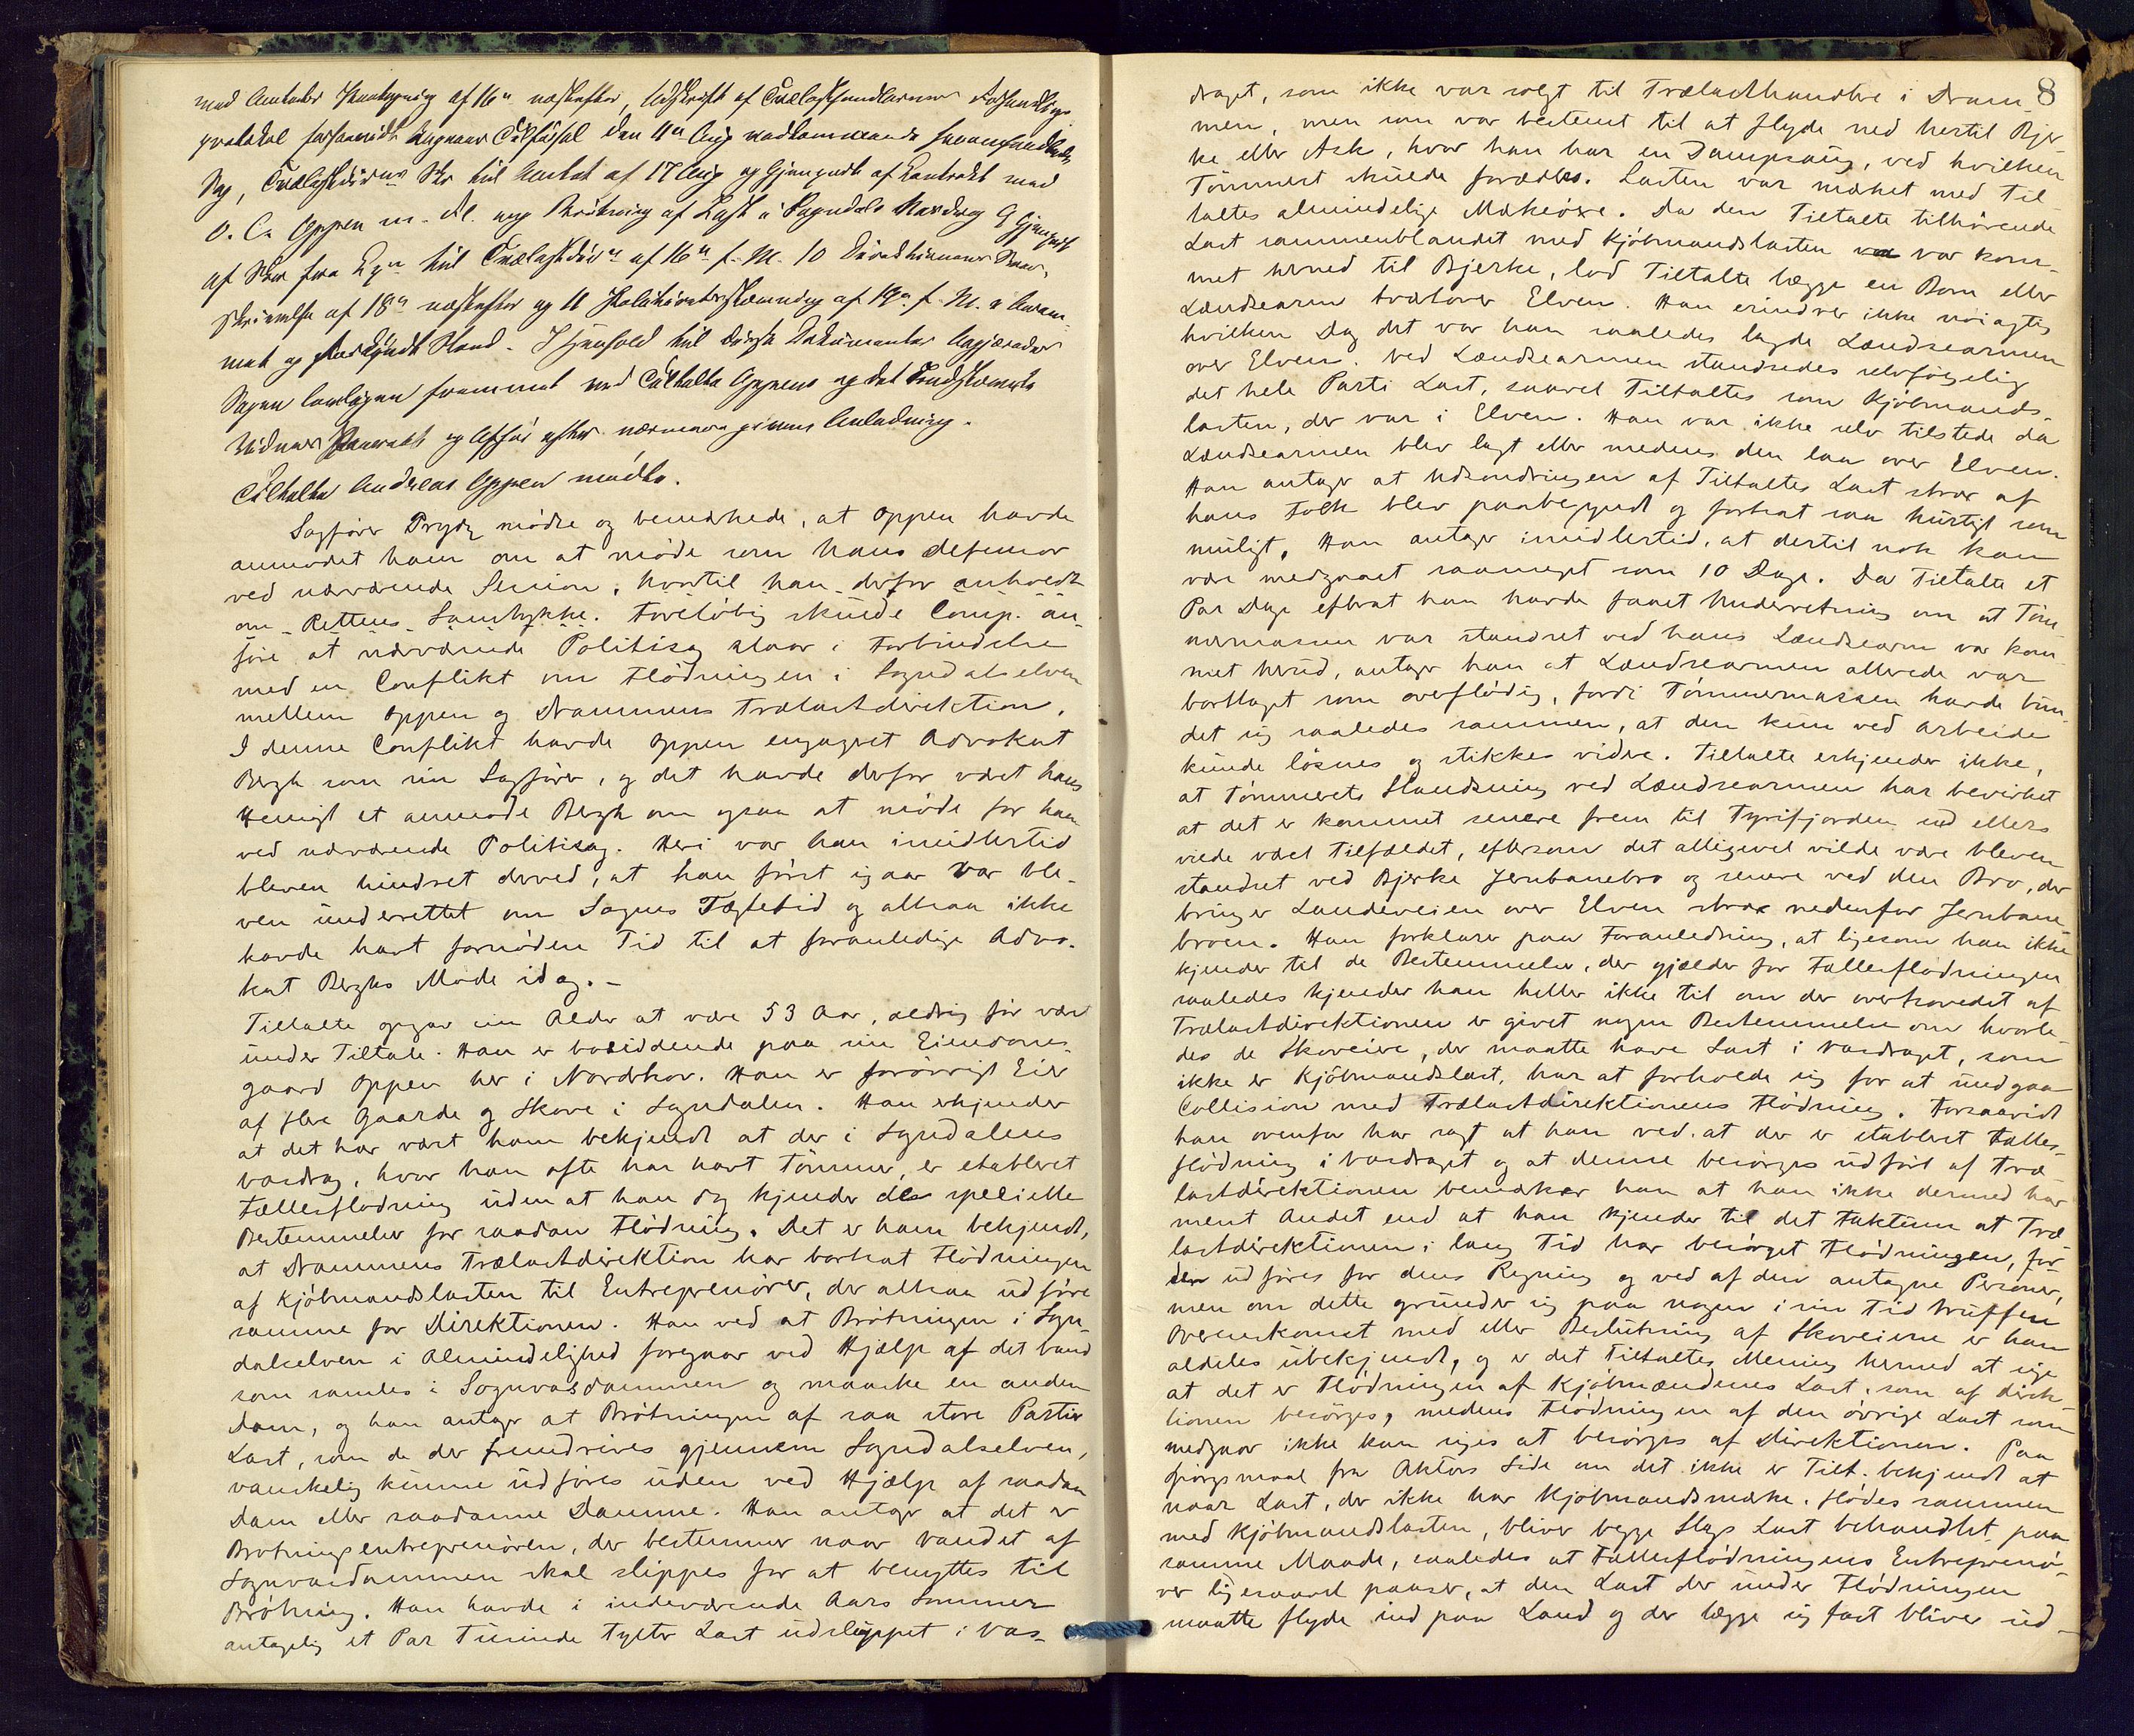 med Amtets Paategning af 16de næstefter, Udskrift af Trælasthandlernes Forhandlings
protokol forsaavidt angaar Tilførsel den 4de Aug vedkommende foranførte
Sag, Trælastdirns Skr til Amtet af 17 Aug og Gjenpart af Kontrakt med
O. C. Oppen m. fl. ang Brøtning af Last i Sogndals Vasdrag 9 Gjenpart
af Skr fra Lgn til Trælastdirn af 16de f. M. 10 Direktionens Svar
skrivelse af 18de næstefter og 11 Politiretsstævning af 19de f. M. i
mat og forkyndt Stand. I Henhold til disse Dokumenter begjæredes
Sagen foretagen fremmet ved Tiltalte Oppens og det indstævnte
Vidnes Fremmøde og Afhør efter nærmere given Anledning.
Tiltalte Andreas Oppen mødte.
Sagfører Prydz mødte og bemærkede, at Oppen havde
anmodet ham om at møde som hans defensor
ved nærværende Session, hvortil han derfor anholdt
om Rettens Samtykke. Foreløbig skulde Comp. an-
føre at nærværende Politisag staar i Forbindelse
med en Conflikt om Flødningen i Sogndalselven
mellem Oppen og Drammens Trælastdirektion.
I denne Conflikt havde Oppen engageret Advokat
Bergh som sin Sagfører, og det havde derfor været hans
Hensigt at anmode Bergh om ogsaa at møde for ham
ved nærværende Politisag. Heri var han imidlertid
bleven hindret derved, at han først igaar var ble-
ven underrettet om Sagens Tægtetid og altsaa ikke
havde havt fornøden Tid til at foranledige Advo-
kat Berghs Møde idag. -
Tiltalte opgav sin Alder at være 53 Aar, aldrig før vært
under Tiltale. Han er bosiddende paa sin Eiendoms-
gaard Oppen her i Norderhov. Han er forøvrigt Eier
af flere Gaarde og Skove i Sogndalen. Han erkjender
at det har vært ham bekjendt at der i Sogndalens
Vasdrag, hvor han ofte har havt Tømmer, er etableret
Fællesflødning uden at han dog kjender de specielle
Bestemmelser for saadan Flødning. Det er ham bekjendt,
at Drammens Trælastdirektion har bortsat Flødningen
af Kjøbmandslasten til Entreprenører, der altsaa udføre
samme for Direktionen. Han ved at Brøtningen i Sogn-
dalselven i Almindelighed foregaar ved Hjælp af det Vand
som samles i Sognvasdammen og maaske en anden
Dam, og han antager at Brøtningen af saa store Partier
Last, som de der fremdrives gjennem Sogndalselven,
vanskelig kunne udføres uden ved Hjælp af saadan
Dam eller saadanne Damme. Han antager at det er
Brøtningsentreprenøren, der bestemmer naar Vandet af
Sognvasdammen skal slippes for at benyttes til
Brøtning. Han havde i indeværende Aars Sommer
antagelig et Par Tusinde Tylter Last udslippet i Vas-
8
draget, som ikke var solgt til Trælasthandlere i Dram
men, men som var bestemt til at flyde ned hertil Bjer
ke eller Ask, hvor han har en Dampsaug, ved hvilken
Tømmeret skulde forædles. Lasten var mærket med Til
taltes almindelige Mærkeøxe. Da den Tiltalte tilhørende
Last sammenblandet med Kjøbmandslasten var kom-
met herned til Bjerke, lod Tiltalte lægge en Bom eller
Lændsearm tvætover Elven. Han erindrer ikke nøiagtig
hvilken Dag det var han saaledes lagde Lændsearmen
over Elven. Ved Lændsearmen standsedes selvfølgelig
det hele Parti Last, saavel Tiltaltes som Kjøbmands-
lasten, der var i Elven. Han var ikke selv tilstede da
Lændsearmen blev lagt eller medens den laa over Elven.
Han antager at Udsondringen af Tiltaltes Last strax af
hans Folk blev paabegyndt og fortsat saa hurtigt som
muligt. Han antager imidlertid, at dertil nok kan
være medgaaet saameget som 10 Dage. Da Tiltalte et
Par Dage efterat han havde faaet Underretning om at Tøm-
mermassen var standset ved hans Lændsearm var kom
met herud, antager han at Lændsearmen allerede var
borttaget som overflødig, fordi Tømmermassen havde bun-
det sig saaledes sammen, at den kun ved Arbeide
kunde løsnes og stikkes videre. Tiltalte erkjender ikke,
at Tømmerets Standsning ved Lændsearmen har bevirket
at det er kommet senere frem til Tyrifjorden end ellers
vilde været Tilfældet, eftersom det alligevel vilde være bleven
standset ved Bjerke Jernbanebro og senere ved den Bro, der
bringer Landeveien over Elven strax nedenfor Jernbane
broen. Han forklarer paa Foranledning, at ligesom han ikke
kjender til de Bestemmelser, der gjælder for Fællesflødningen
saaledes kjender han heller ikke til om der overhovedet af
Trælastdirektionen er givet nogen Bestemmelse om hvorle
des de Skoveiere, der maatte have Last i Vasdraget, som
ikke er Kjøbmandslast, har at forholde sig for at undgaa
Collision med Trælastdirektionens Flødning. Forsaavidt
han ovenfor har sagt at han ved at der er etableret Fælles-
flødning i Vasdraget og at denne besørges udført af Træ
lastdirektionen bemærker han at han ikke dermed har
ment Andet end at han kjender til det Faktum at Træ
lastdirektionen i lang Tid har besørget Flødningen, for
den udføres for dens Regning og ved af den antagne Personer,
men om dette grunder sig paa nogen i sin Tid truffen
Overenskomst med eller Beslutning af Skoveierne er han
aldeles ubekjendt, og er det Tiltaltes Mening hermed at sige
at det er Flødningen af Kjøbmændenes Last, som af Direk-
tionen besørges, medens Flødningen af den øvrige Last som
medgaar ikke kan siges at besørges af Direktionen. Paa
Spørgsmaal fra Aktors Side om det ikke er Tilt. bekjendt at
naar Last, der ikke har Kjøbmandsmærke, flødes sammen
med Kjøbmandslasten, bliver begge Slags Last behandlet paa
samme Maade, saaledes at Fællesflødningens Entreprenø-
rer ligesaavel passer, at den Last der under Flødningen
maatte flyde ind paa Land og der lægge sig fast bliver ud-